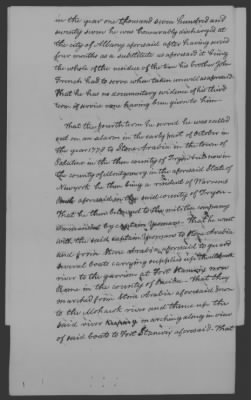 in the year one thousand seven hundred and
seventy seven he was honourably discharged at
the city of Albany aforesaid after having served
four months as a substitute as aforesaid it being
the whole of the residue of the time his brother John
French had to serve when taken unwell as aforesaid
That he has no documentary evidence of his third
term of service none having been given to him
That the fourth term he served he was called
out on an alarm in the early part of October in
the year 1778 to Stone Arabia in the town of
Palatine in the then county of Tryon but now in
the county of Montgomery in the aforesaid State of
New york he then being a resident of Warrens
Bush aforesaid in the said county of Tryon
That he then belonged to the militia company
commanded by captain Yeomans. That he went
with the said captain Yeomans to Stone Arabia
and from Stone Arabia aforesaid to guard
several boats carrying supplies up the Mohawk
river to the garrison at Fort Stanwix now
Rome in the county of Oneida. That they
marched from Stone Arabia aforesaid down
to the Mohawk river and thence up the
said river keeping marching along in view
of said boats to Fort Stanwix aforesaid. That